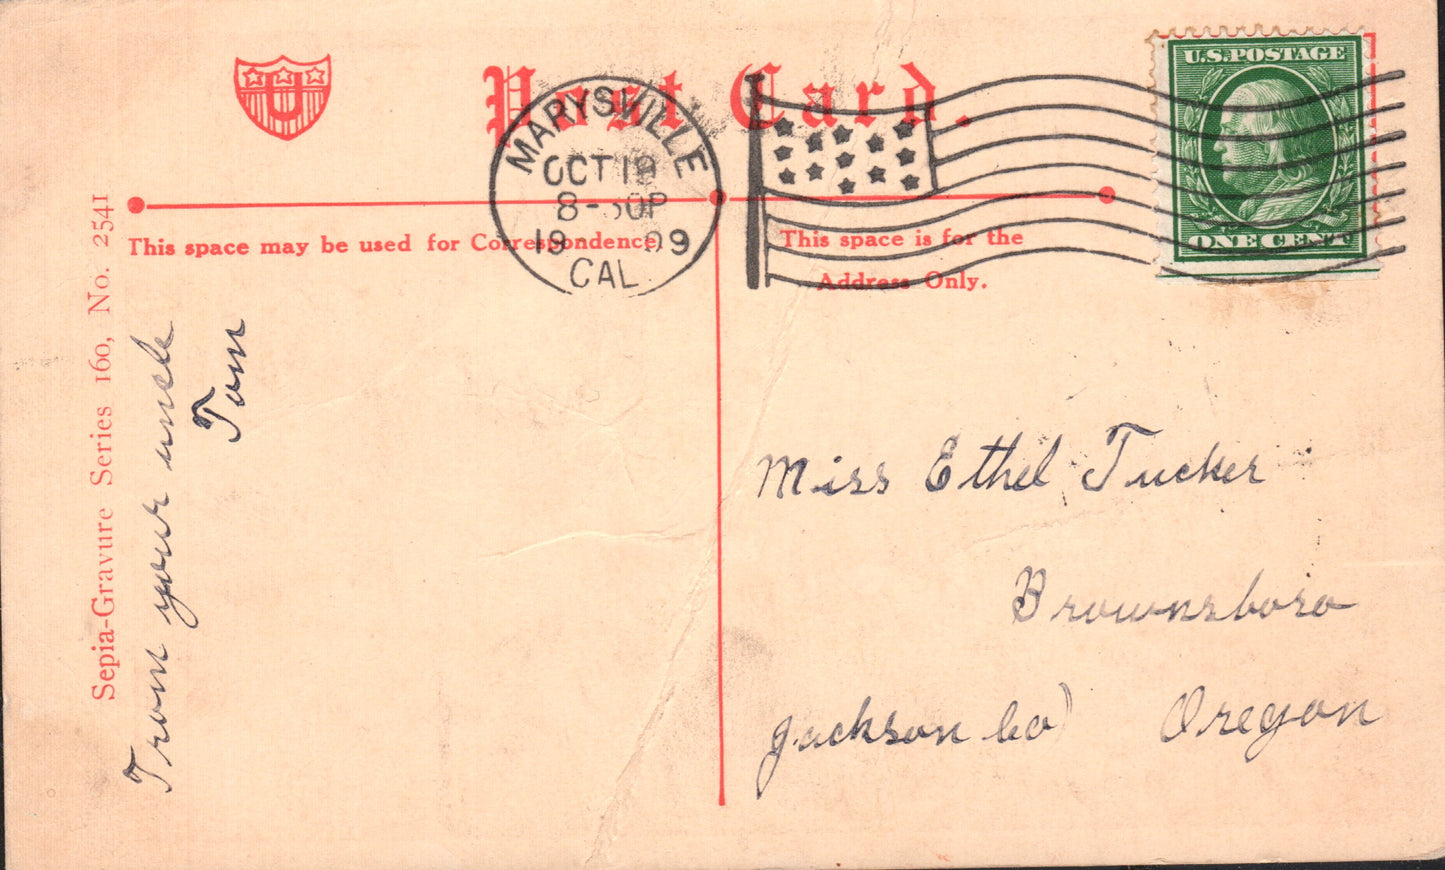 U
Post Card.
U.S. POSTAGE
ONE CENT
MARYSVILLE
OCT 19
8-30P
1909
CAL.
This space may be used for Correspondence.
This space is for the
Address Only.
Sepia-Gravure Series 160, No. 2541
From your uncle
Tom
Miss Ethel Tucker
Brownsboro
Jackson Co) Oregon